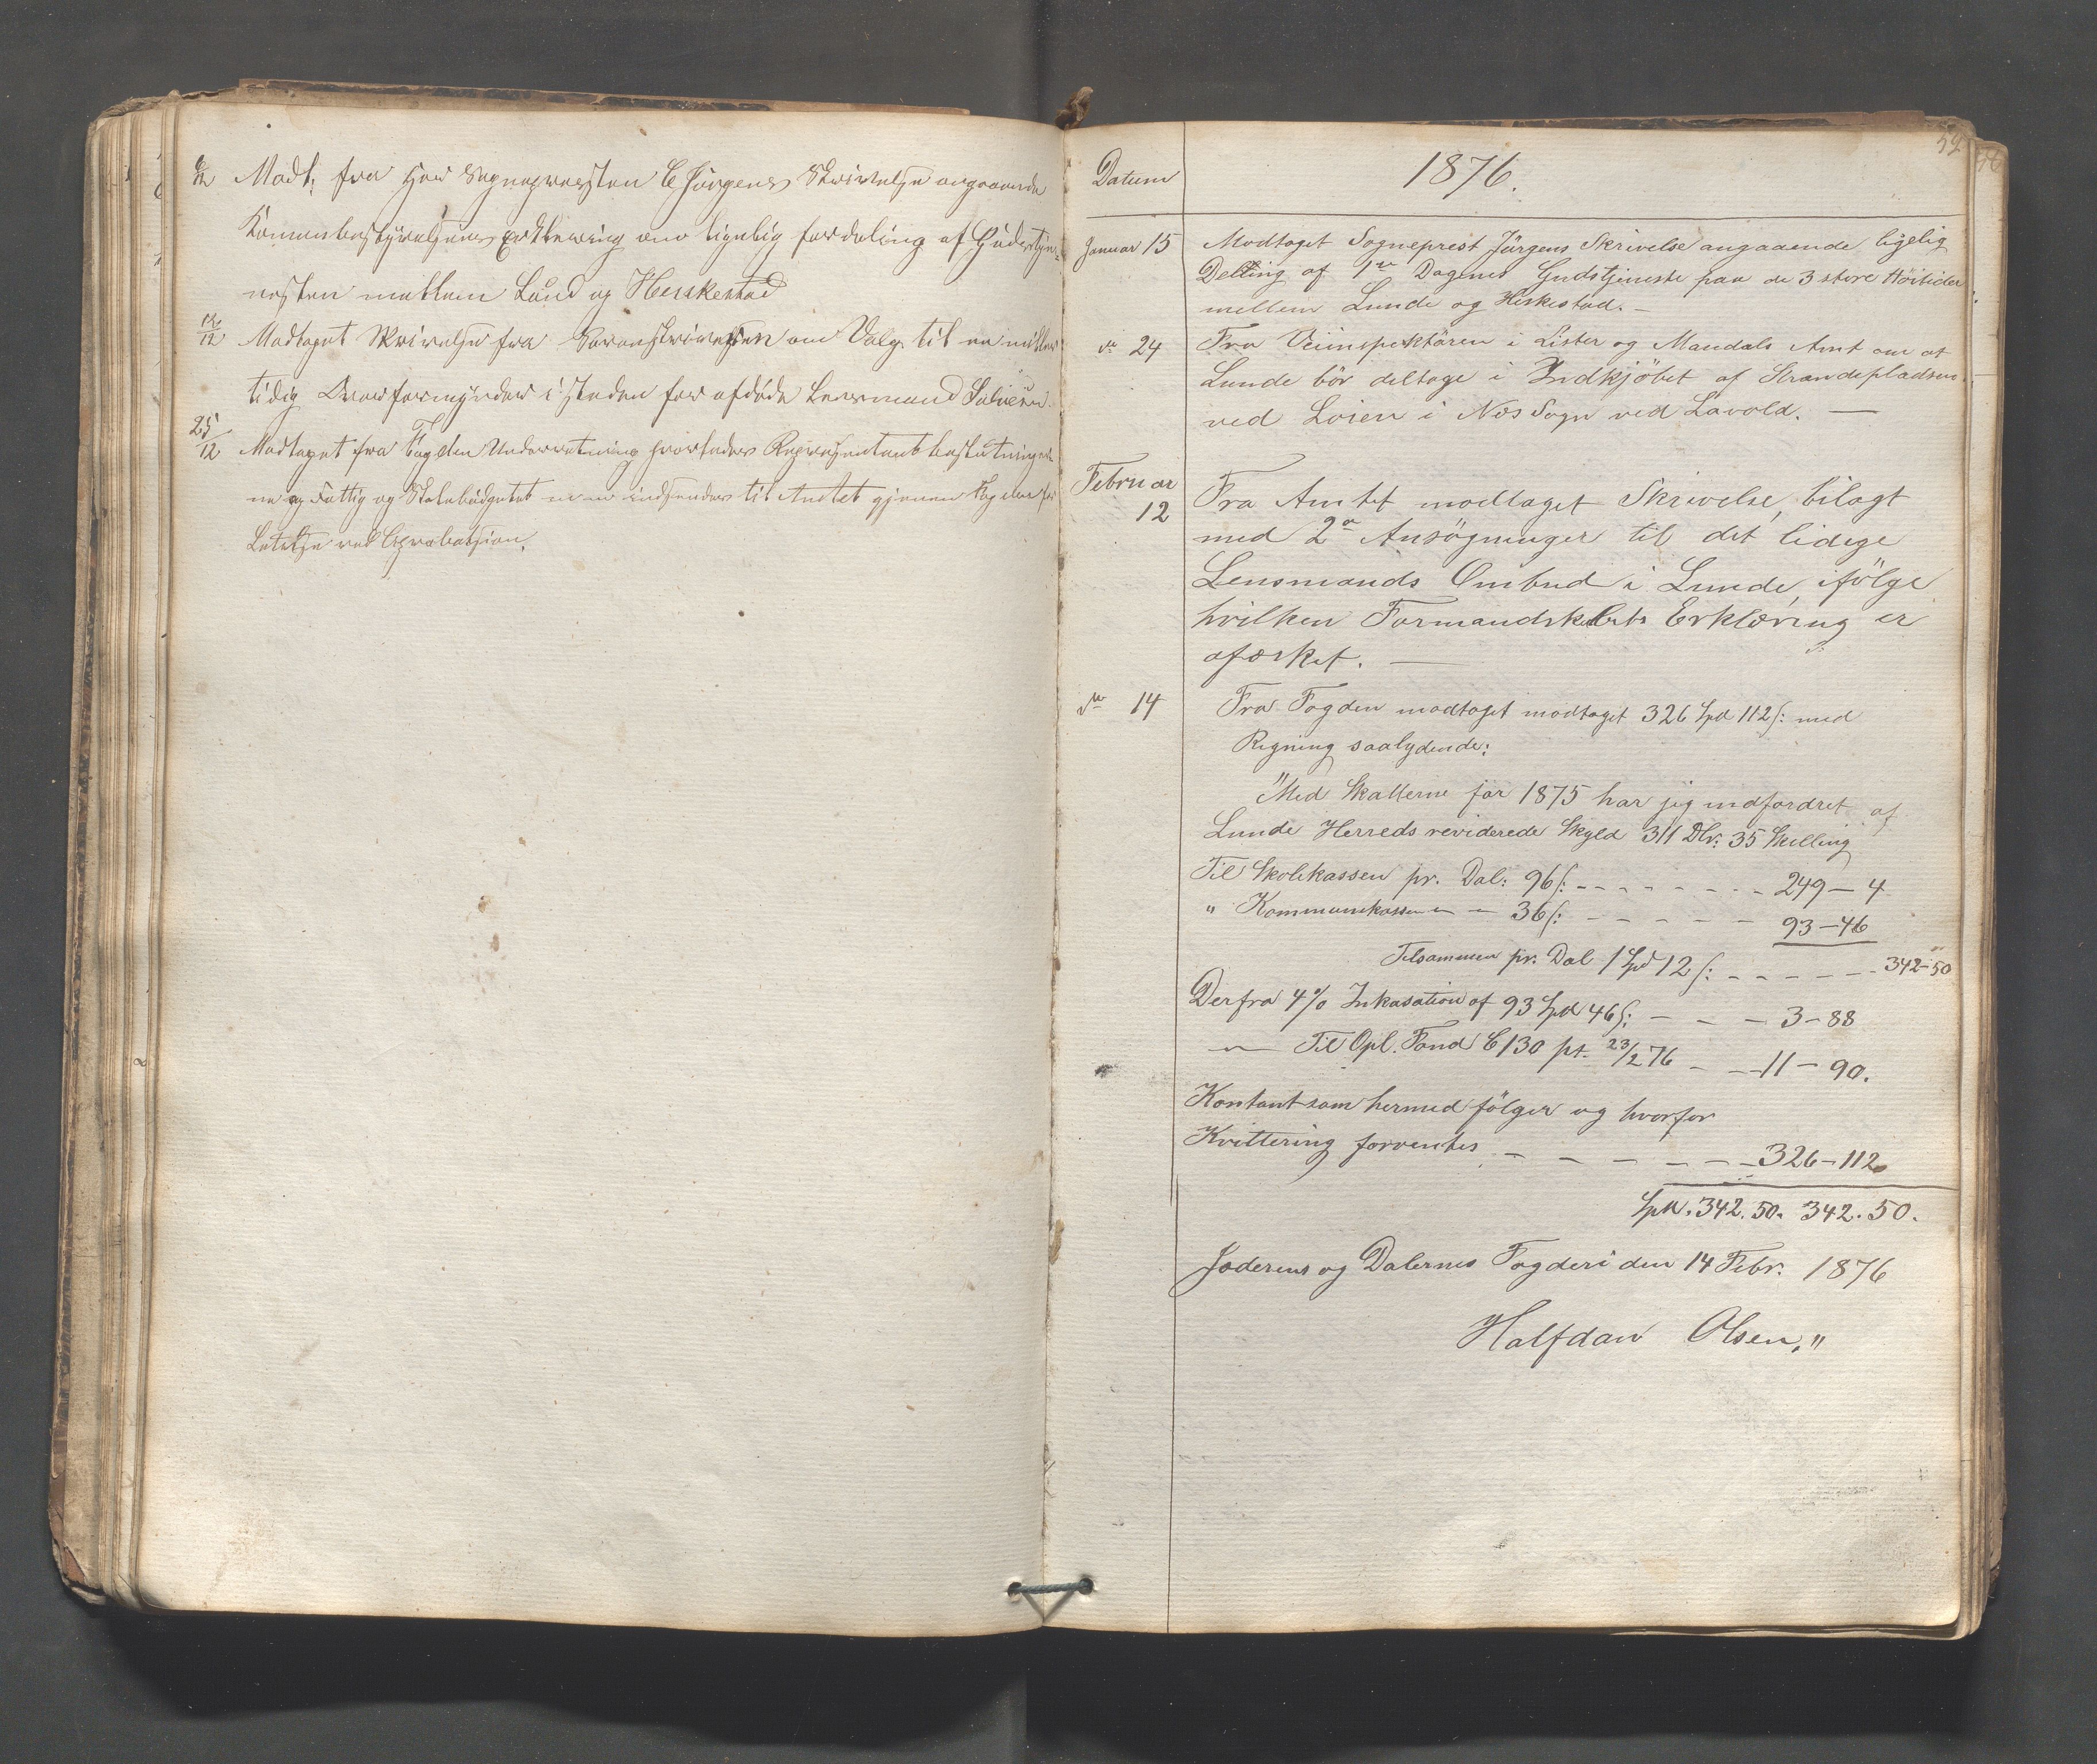 Modt: fra Her Sognepresten E Jürgens Skrivelse angaaende
Komunbestyrelsens Erklæring om lignelig fordeling af Gudstje-
nesten mellem Lund og Heskestad
12/12 Modtaget Skrivelse fra Sorenskriveren om Valg til en midler
tidig Overformynder i steden for afdøde Lensmand
25/12 Modtaget fra Fogden Underretning Representant beslutning
og Fattig og Skolebudgetet indsendes til Amtet gjennem Fogden
ved Aprobasjion.
52
Datum
1876.
Januar 15 Modtaget Sogneprest Jürgens Skrivelse angaaende ligelig
Deling af 1ste Dagenes Gudstjeneste paa de 3 store Höitider
mellem Lunde og Heskestad. —
do 24 Fra Veiinspektören i Lister og Mandals Amt om at
Lunde bör deltage i Indkjöbet af Strandepladsen
ved Loien i Nes Sogn ved Lavold. —
Februar
12 Fra Amtet modtaget Skrivelse, bilagt
med 2de Ansögninger til det ledige
Lensmands Ombud i Lunde, ifölge
hvilken Formandskabets Erklæring er
afæsket. —
do 14 Fra Fogden modtaget modtaget 326 Spd 112 s: med
Regning saalydende:
"Med Skatterne for 1875 har jeg indfordret af
Lunde Herreds reviderede Skyld 311 Dlr: 35 Skilling
Til Skolekassen pr. Dal: 96 s: - - - - - - - - 249 — 4
" Kommunekassen — — 36 s: - - - - - - 93 — 46
Tilsammen pr. Dal 1 Spd 12 s: - - - - - - 342 - 50
Derfra 4% Inkasation af 93 Spd 46 s: - - - 3 - 88
— Til Opl. Fond C 130 pt. 23/2 76 - - 11 - 90.
Kontant som hermed fölger og hvorfor
Kvittering forventes - - - - - - 326 - 112
Spd. 342. 50. 342. 50.
Jæderens og Dalernes Fogderi den 14 Febr. 1876
Halfdan Olsen."